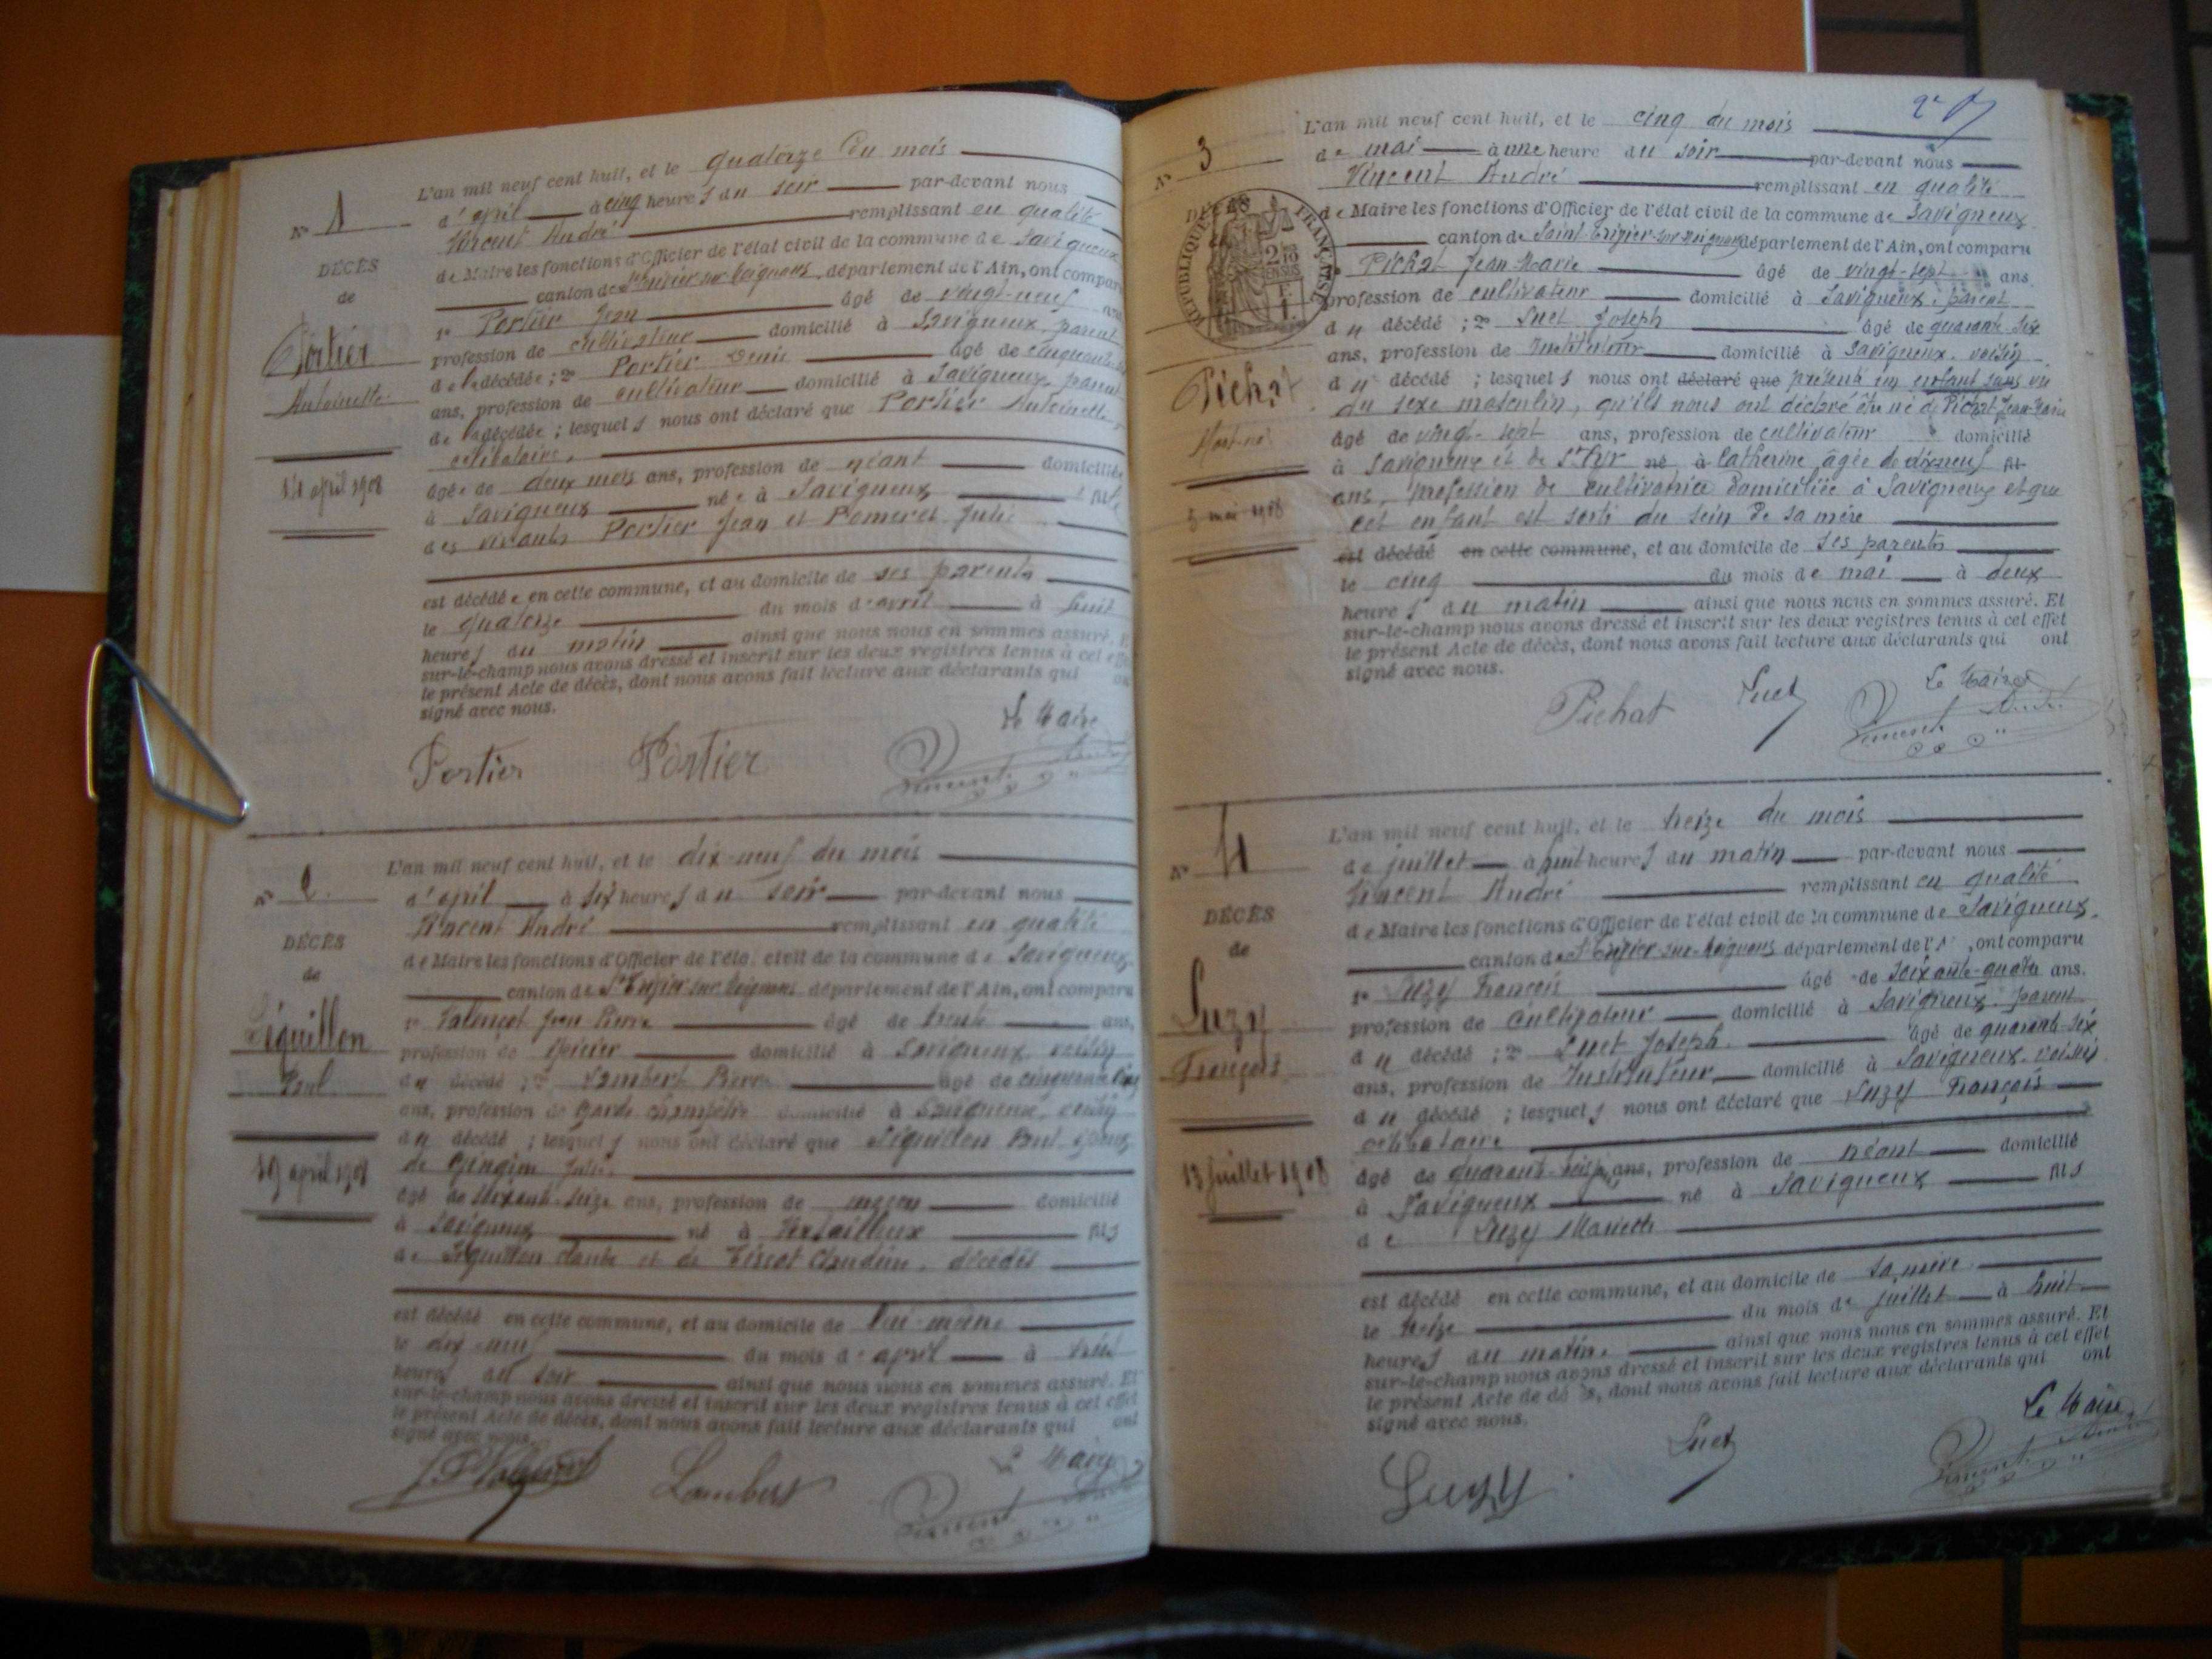 N° 1
DÉCÈS
de
Portier
Antoinette
14 april 1908
L'an mil neuf cent huit, et le quatorze du mois
d'april à cinq heures du soir par-devant nous
Vincent André remplissant en qualité
de Maire les fonctions d'Officier de l'état civil de la commune de Savigneux
canton de St Trivier-sur-Moignans, département de l'Ain, ont comparu
1° Portier Jean âgé de vingt-neuf ans
profession de cultivateur domicilié à Savigneux, parent
de la décédée ; 2° Portier Denis âgé de cinquante
ans, profession de cultivateur domicilié à Savigneux, parent
de la décédée ; lesquels nous ont déclaré que Portier Antoinette
célibataire,
âgée de deux mois ans, profession de néant domiciliée
à Savigneux née à Savigneux fille
des vivants Portier Jean et Pomeret Julie
est décédée en cette commune, et au domicile de ses parents
le quatorze du mois d'avril à huit
heures du matin ainsi que nous nous en sommes assuré. Et
sur-le-champ nous avons dressé et inscrit sur les deux registres tenus à cet effet
le présent Acte de décès, dont nous avons fait lecture aux déclarants qui ont
signé avec nous.
Le Maire
Portier Portier Vincent André
N° 2.
DÉCÈS
de
Séguillon
Paul
19 april 1908
L'an mil neuf cent huit, et le dix-neuf du mois
d'april à six heures du soir par-devant nous
Vincent André remplissant en qualité
de Maire les fonctions d'Officier de l'état civil de la commune de Savigneux
canton de St Trivier-sur-Moignans département de l'Ain, ont comparu
1° Valençot Jean Pierre âgé de trente ans,
profession de épicier domicilié à Savigneux, voisin
du décédé ; 2° Lambert Pierre âgé de cinquante cinq
ans, profession de garde champêtre domicilié à Savigneux, voisin
du décédé ; lesquels nous ont déclaré que Séguillon Paul, époux
de Julie,
âgé de soixante-seize ans, profession de maçon domicilié
à Savigneux né à Versailleux fils
de Séguillon Claude et de Claudine, décédés
est décédé en cette commune, et au domicile de lui-même
le dix-neuf du mois d'april à
heures du soir ainsi que nous nous en sommes assuré. Et
sur-le-champ nous avons dressé et inscrit sur les deux registres tenus à cet effet
le présent Acte de décès, dont nous avons fait lecture aux déclarants qui ont
signé avec nous.
Le Maire
Lambert Vincent André
N° 3
DÉCÈS
RÉPUBLIQUE FRANÇAISE
2 10
EN SUS
Pichat
Mort-né
5 mai 1908
L'an mil neuf cent huit, et le cinq du mois
de mai à une heure du soir par-devant nous
Vincent André remplissant en qualité
de Maire les fonctions d'Officier de l'état civil de la commune de Savigneux
canton de Saint-Trivier-sur-Moignans département de l'Ain, ont comparu
Pichat Jean Marie âgé de vingt-sept ans
profession de cultivateur domicilié à Savigneux, parent
du décédé ; 2° Suet Joseph âgé de quarante-six
ans, profession de Instituteur domicilié à Savigneux, voisin
du décédé ; lesquels nous ont déclaré que présenté un enfant sans vie
du sexe masculin, qu'ils nous ont déclaré être né de Pichat Jean-Marie
âgé de vingt-sept ans, profession de cultivateur domicilié
à Savigneux et de St Cyr né à Catherine âgée de dixneuf fils
ans, profession de cultivatrice domiciliée à Savigneux et que
cet enfant est sorti du sein de sa mère
est décédé en cette commune, et au domicile de ses parents
le cinq du mois de mai à deux
heures du matin ainsi que nous nous en sommes assuré. Et
sur-le-champ nous avons dressé et inscrit sur les deux registres tenus à cet effet
le présent Acte de décès, dont nous avons fait lecture aux déclarants qui ont
signé avec nous.
Le Maire
Pichat Suet Vincent André
N° 4
DÉCÈS
de
Suzy
François
13 juillet 1908
L'an mil neuf cent huit, et le treize du mois
de juillet à huit heures du matin par-devant nous
Vincent André remplissant en qualité
de Maire les fonctions d'Officier de l'état civil de la commune de Savigneux,
canton de St Trivier-sur-Moignans département de l'A , ont comparu
1° Suzy François âgé de soixante-quatre ans.
profession de cultivateur domicilié à Savigneux, parent
du décédé ; 2° Suet Joseph. âgé de quarante-six
ans, profession de Instituteur domicilié à Savigneux, voisin
du décédé ; lesquels nous ont déclaré que Suzy François
célibataire
âgé de quarante-trois ans, profession de néant domicilié
à Savigneux né à Savigneux fils
de Suzy Mariette
est décédé en cette commune, et au domicile de sa mère
le treize du mois de juillet à huit
heures du matin. ainsi que nous nous en sommes assuré. Et
sur-le-champ nous avons dressé et inscrit sur les deux registres tenus à cet effet
le présent Acte de décès, dont nous avons fait lecture aux déclarants qui ont
signé avec nous.
Le Maire
Suzy Suet Vincent André